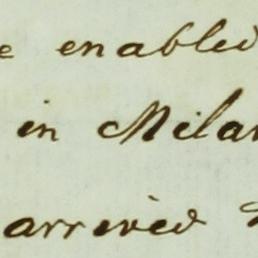 e enabled
in Milan
arrived